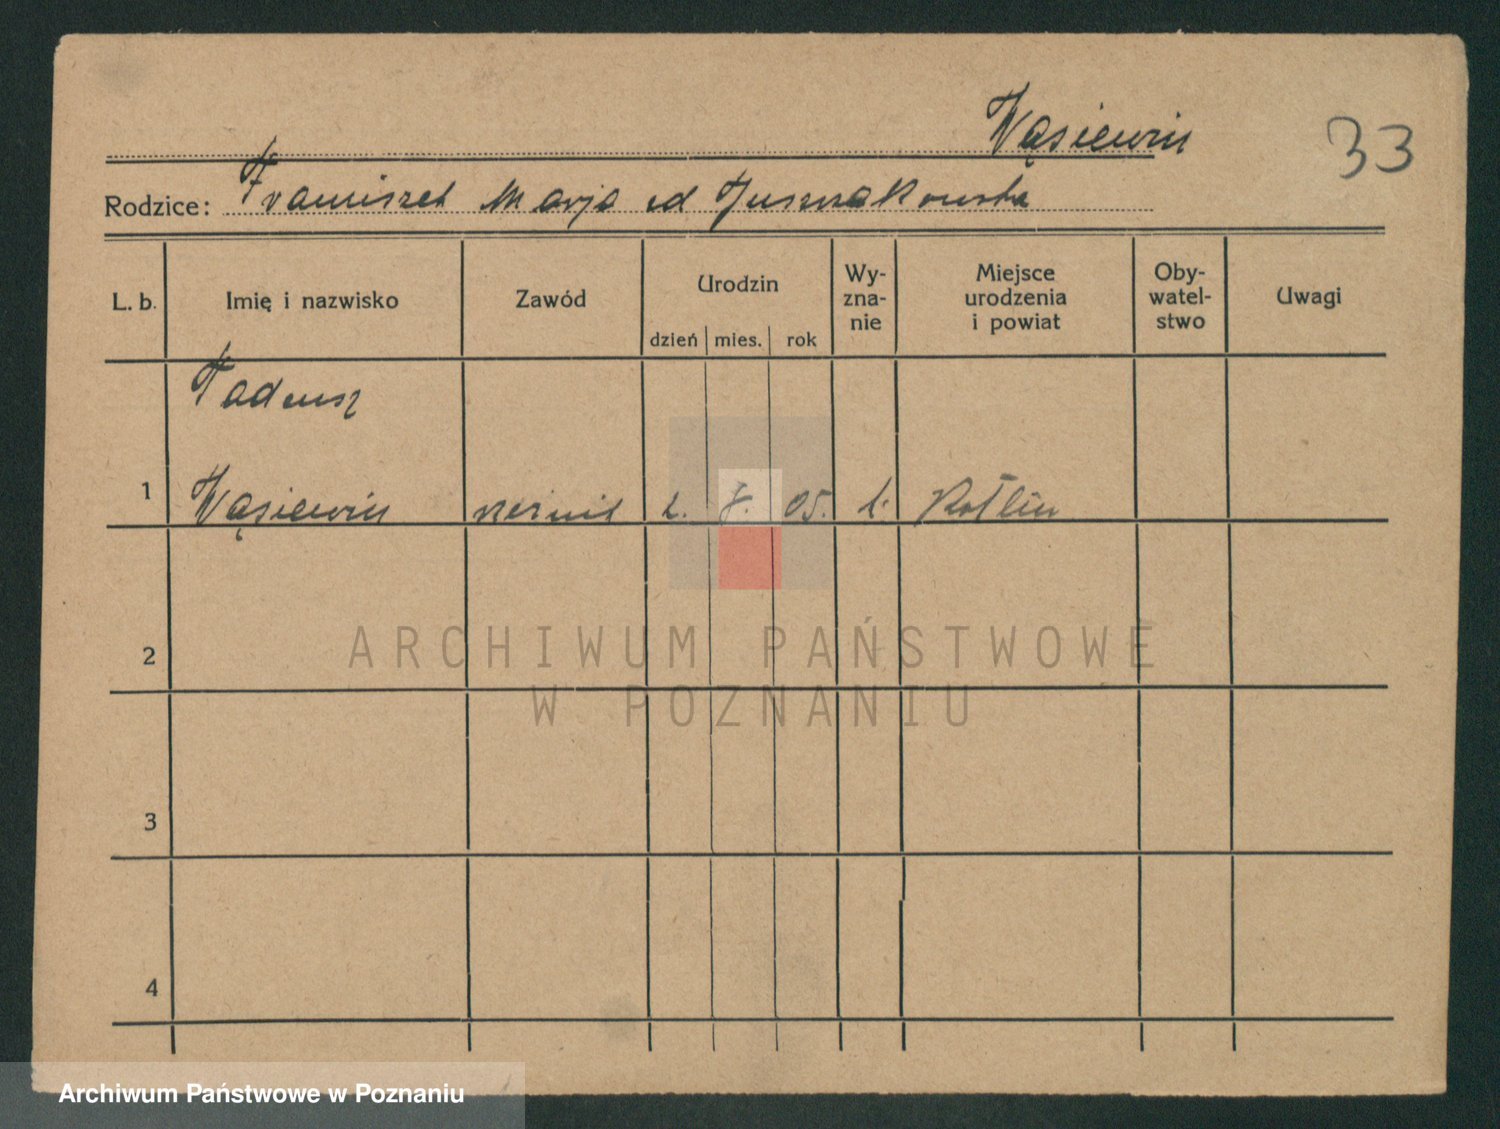 Wąsiewicz
33
Rodzice: Franciszek Marja
L. b. Imię i nazwisko Zawód Urodzin dzień mies. rok Wy-zna-nie Miejsce urodzenia i powiat Oby-watel-stwo Uwagi
Tadeusz
1 Wąsiewicz 05. Kotlin
2
3
4
ARCHIWUM PAŃSTWOWE
W POZNANIU
Archiwum Państwowe w Poznaniu